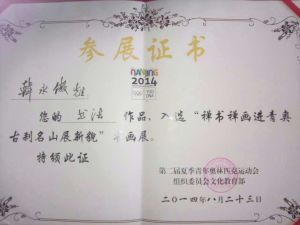 参展证书
NANJING
2014
韩永
您的书法作品，入选“禅书禅画进青奥
古刹名山展新貌”书画展。
特颁此证
第二届夏季青年奥林匹克运动会
组织委员会文化教育部
二〇一四年八月二十三日